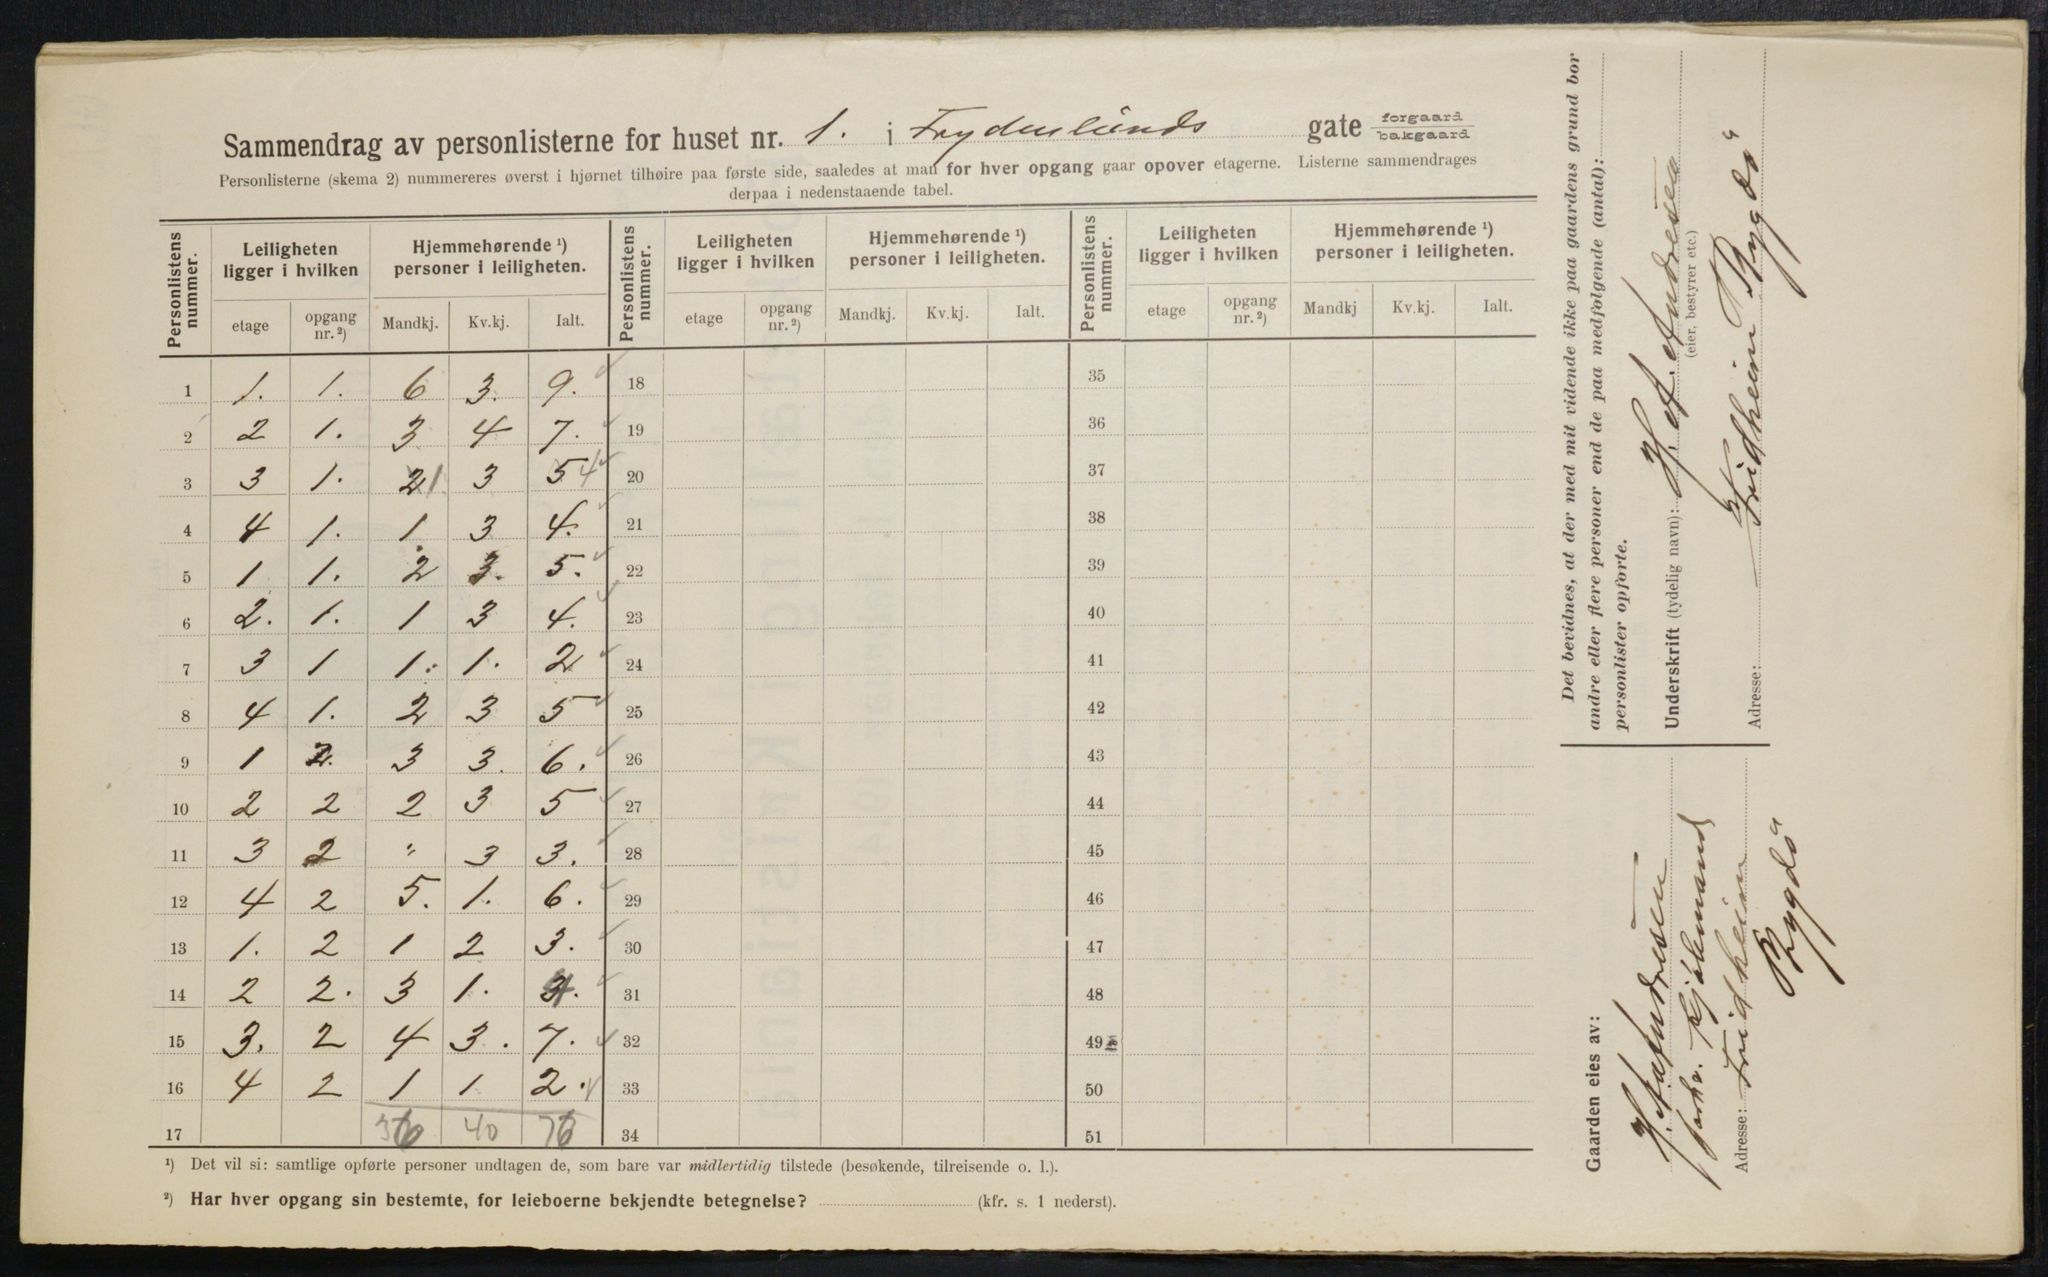 Sammendrag av personlisterne for huset nr. 1. i Frydenlunds gate forgaard bakgaard
Personlisterne (skema 2) nummereres øverst i hjørnet tilhøire paa første side, saaledes at man for hver opgang gaar opover etagerne. Listerne sammendrages
derpaa i nedenstaaende tabel.
Personlistens nummer. Leiligheten ligger i hvilken Hjemmehørende ¹) personer i leiligheten. Personlistens nummer. Leiligheten ligger i hvilken Hjemmehørende ¹) personer i leiligheten. Personlistens nummer. Leiligheten ligger i hvilken Hjemmehørende ¹) personer i leiligheten.
etage opgang nr. ²) Mandkj. Kv.kj. Ialt. etage opgang nr. ²) Mandkj. Kv.kj. Ialt. etage opgang nr. ²) Mandkj Kv.kj. Ialt.
1 1. 1. 6 3. 9. 18 35
2 2 1. 3 4 7. 19 36
3 3 1. 2 1 3 5 4 20 37
4 4 1. 1. 3 4. 21 38
5 1 1. 2 3. 5. 22 39
6 2. 1. 1 3 4. 23 40
7 3 1 1. 1. 2 24 41
8 4 1. 2 3 5 25 42
9 1 2. 3 3. 6. 26 43
10 2 2 2 3 5 27 44
11 3 2 " 3 3. 28 45
12 4 2 5. 1. 6. 29 46
13 1. 2 1 2 3. 30 47
14 2 2. 3 1. 4. 31 48
15 3. 2 4 3. 7. 32 49
16 4 2 1 1 2. 33 50
17 36 40 76 34 51
¹) Det vil si: samtlige opførte personer undtagen de, som bare var midlertidig tilstede (besøkende, tilreisende o. l.).
²) Har hver opgang sin bestemte, for leieboerne bekjendte betegnelse? (kfr. s. 1 nederst).
Det bevidnes, at der med mit vidende ikke paa gaardens grund bor
andre eller flere personer end de paa medfølgende (antal):
personlister opførte.
Underskrift (tydelig navn): H. A. Andresen
(eier, bestyrer etc.)
Adresse: Fridheim Bygdö
Gaarden eies av:
H. A. Andresen
Adresse: Fridheim
Bygdö